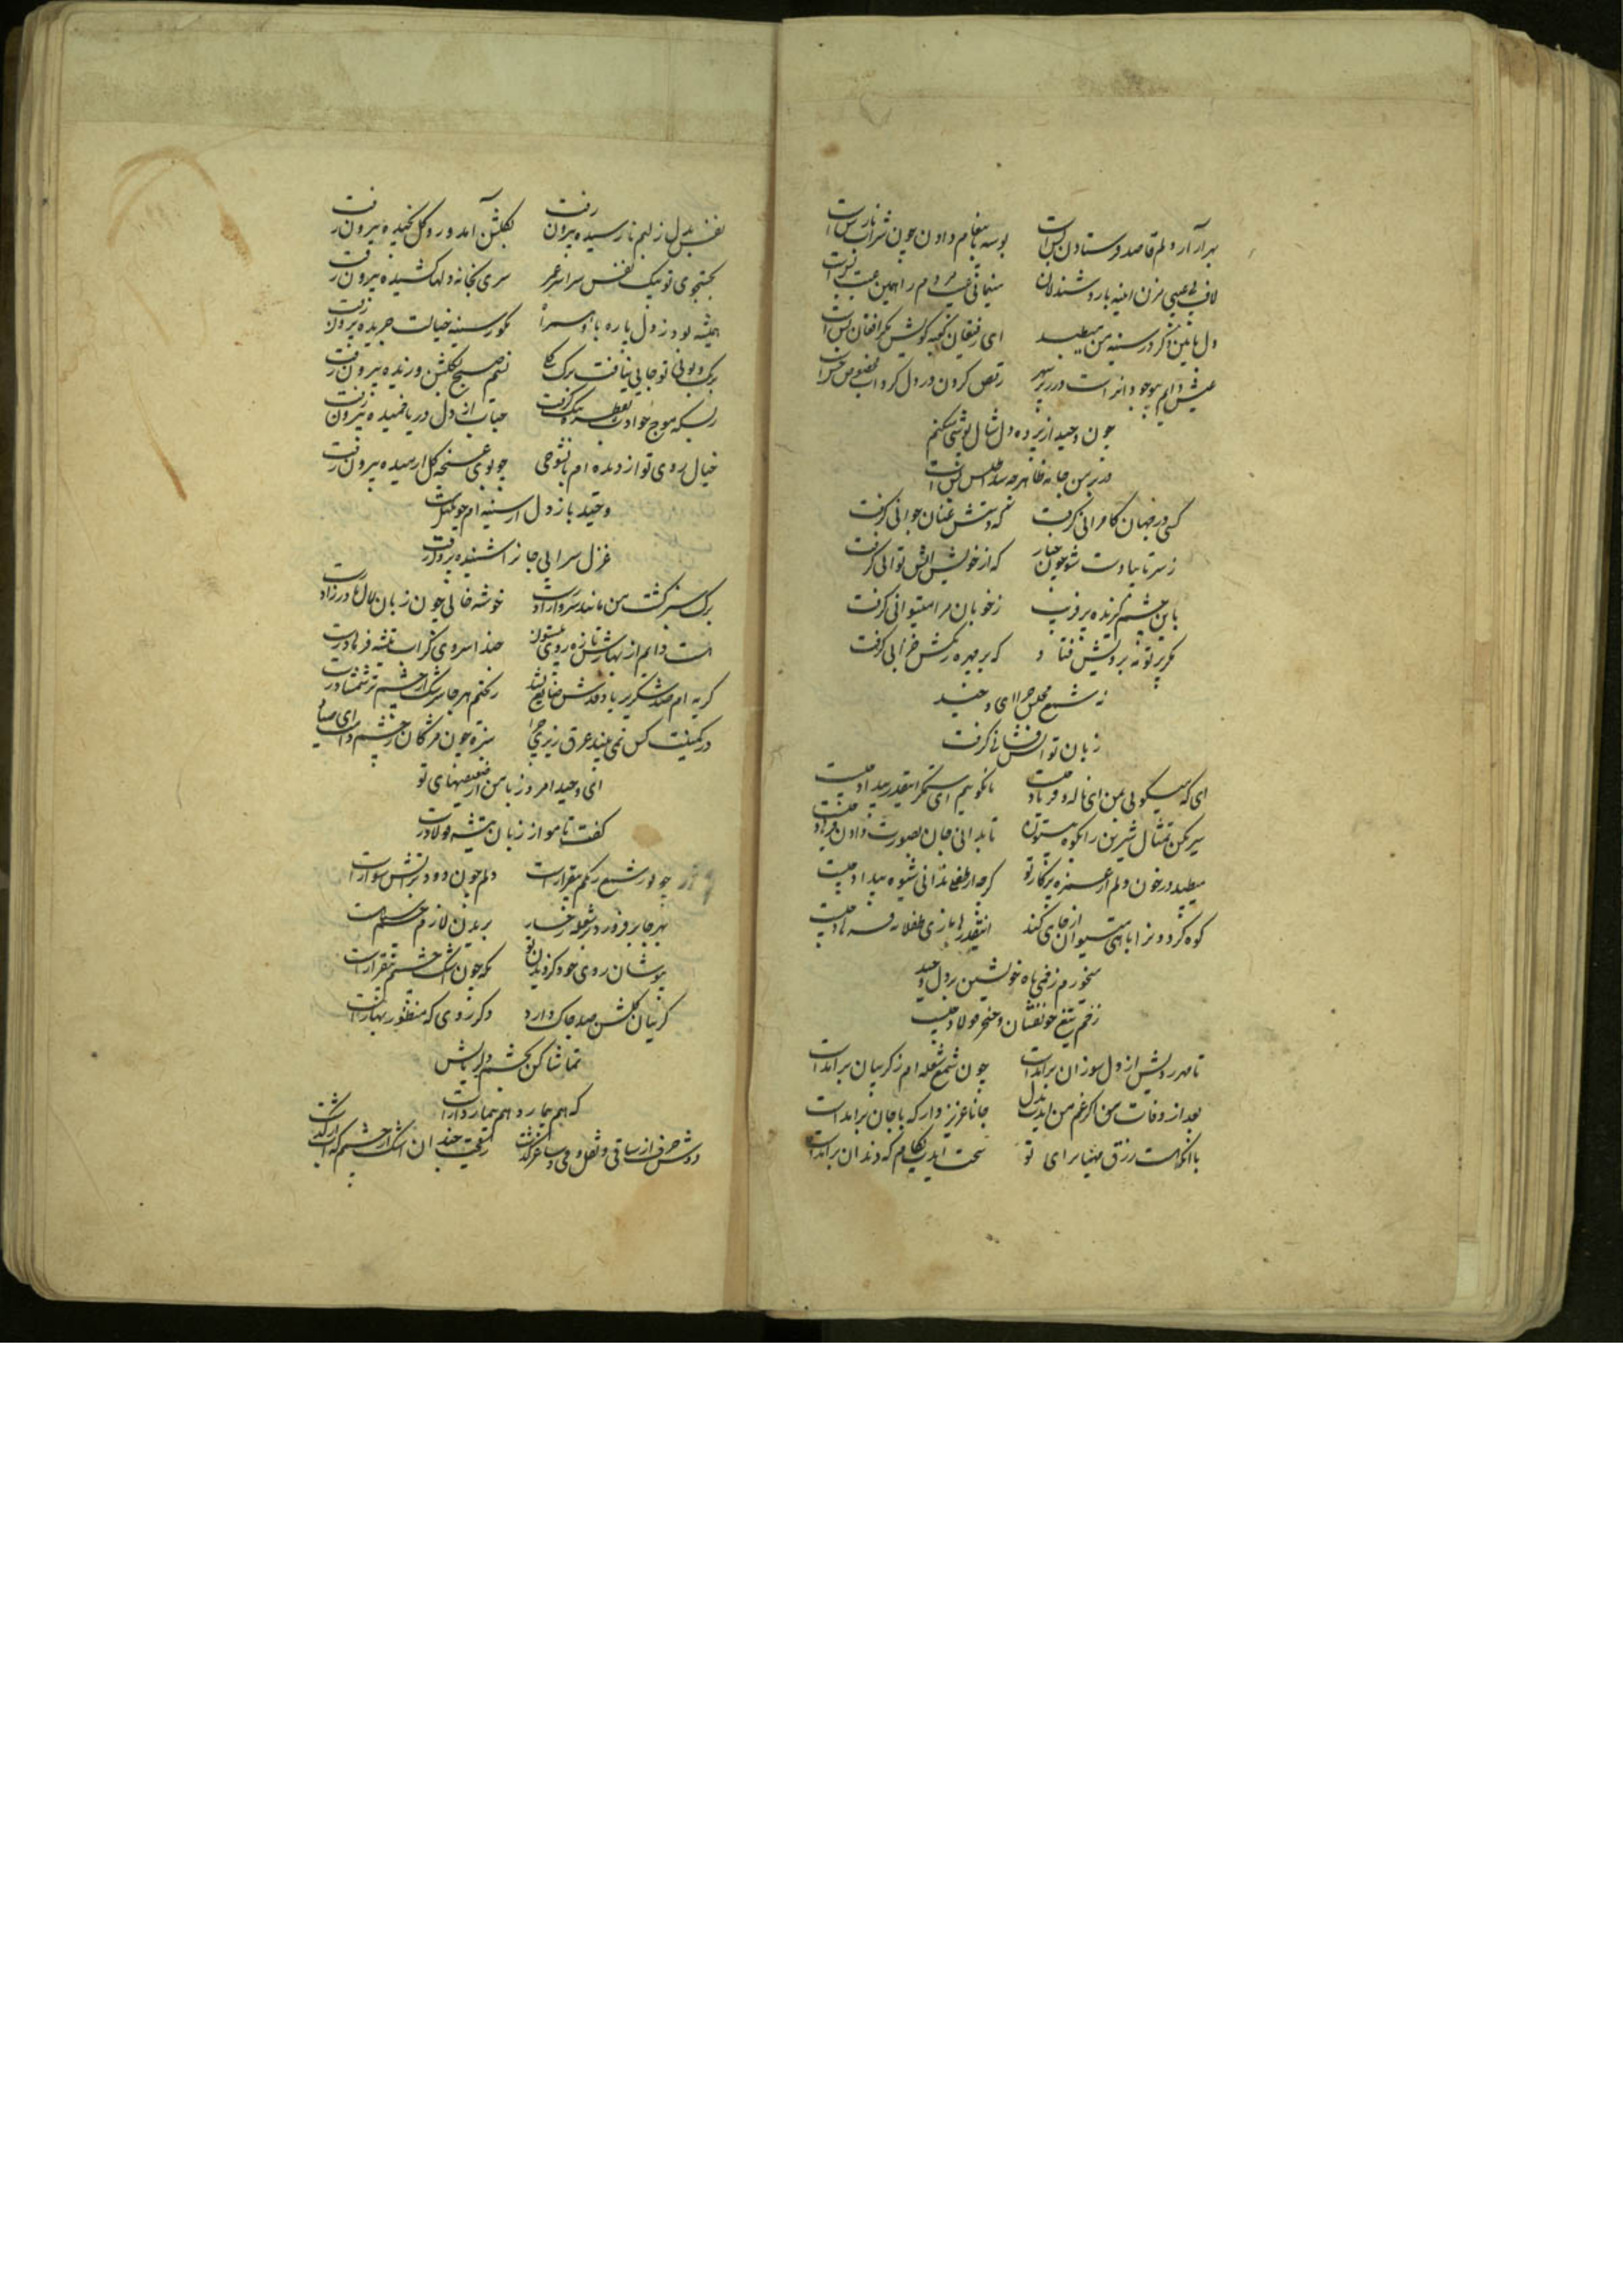 بهر آزار دلم قاصد فرستادن بس است بوسه با پیغام دادن چون شراب نارس است
لاف بی عیبی مزن آینه با روشندلان
دل باین در سینه من میطپد ای رفیقان کعبه کویش مگر افغان بس است
رقص کردن در دل گرداب مخصوص خس است
چون وحید از پرده دل شال پوشی میکنم
در بر من جامه اطلس است
کسی در جهان کامرانی گرفت که دستش عنان جوانی گرفت
ز سر تا بپا دست شو چون چنار که از خویش آتش توانی گرفت
باین چشم گیرنده پر فریب ز خوبان مرا میتوانی گرفت
مگر پرتوت بر رویش فتاد که بر چهره رنگش خزانی گرفت
نه شمع مجلس چرا ای وحید
زبان تو آتش فشانی گرفت
ای که میگویی بمن ای ناله و فریاد چیست ما نگوییم ای ستمگر اینقدر بیداد چیست
سیر کن تمثال شیرین را بکوه بیستون تا بدانی جان بصورت دادن فرهاد چیست
میطپد در خون دلم از غمزه پرکار تو گرچه از طفلی ندانی شیوه بیداد چیست
کوه گردون را باهی میتوان از جای کند اینقدرها بازی طفلانه فرهاد چیست
میخورم زخمی ز آه خویشتن بر دل وحید
زخم تیغ خونفشان و خنجر فولاد چیست
تا مهر رویش از دل سوزان برآمد است چون شمع شعله ام ز گریبان برآمد است
بعد از وفات من اگر غم من آیدت بدل جانا عزیز دار که با جان برآمد است
با آنکه هست رزق مهیا برای تو سخت آیدت بکام که دندان برآمد است
نفس ز دل بلبم نارسیده بیرون رفت بگلشن آمد و رو گل نچیده بیرون رفت
بجستجوی تو یک نفس سراسر عمر سری بخانه دلها کشیده بیرون رفت
همیشه بود ز دل پاره با او همراه مگو ز سینه خیالت جریده بیرون رفت
برنگ و بوی تو جایی نیافت برگ گلی نسیم صبح بگلشن وزیده بیرون رفت
ز بسکه موج حوادث بقطره تنگ گرفت حباب از دل دریا خمیده بیرون رفت
خیال روی تو از دیده ام باین شوخی چو بوی غنچه گل آرمیده بیرون رفت
وحید باز دل از سینه ام چو
غزل سرایی جانرا شنیده بیرون رفت
برگ سبز کشت من مانند سرو آزاد است خوشه خالی چون زبان لال مادرزاد است
هست دایم از بهارش تازه روی بیستون
گریه ام صد شکر بر یاد قدش ضایع نشد ریختم هر جا سرشک از چشم تر شمشاد رست
در کمینت کس نمی بیند عرق ریزی چرا سبزه چون مژگان ز چشم دام ای صیاد رست
ای وحید امروز با من از ضعیفیهای تو
گفت تا مو از زبان تیشه فولاد رست
چو نور شمع رنگم بیقرار است دلم چون دود بر آتش سوار است
بهر جا بر فروزد شعله رخسار پریدن لازم چشم
بپوشان روی خود گر دیدن تو که چون اشکم چشم بیقرار است
گریبان گلشن صد چاک دارد دگر روی که منظور بهار است
تماشا کن بچشم دلربایش
که هم بیمار و هم بیماردار است
دوش حرف از ساقی و نقل و می و ساغر گذشت رفت چندان اشک از چشمم که آب از سر گذشت